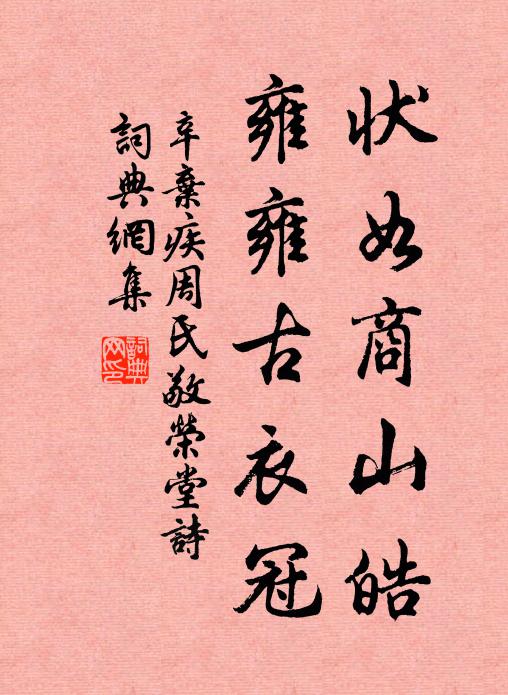 状如商山皓
雍雍古衣冠
辛棄疾周氏敬榮堂詩
詞典網集
詞典網印